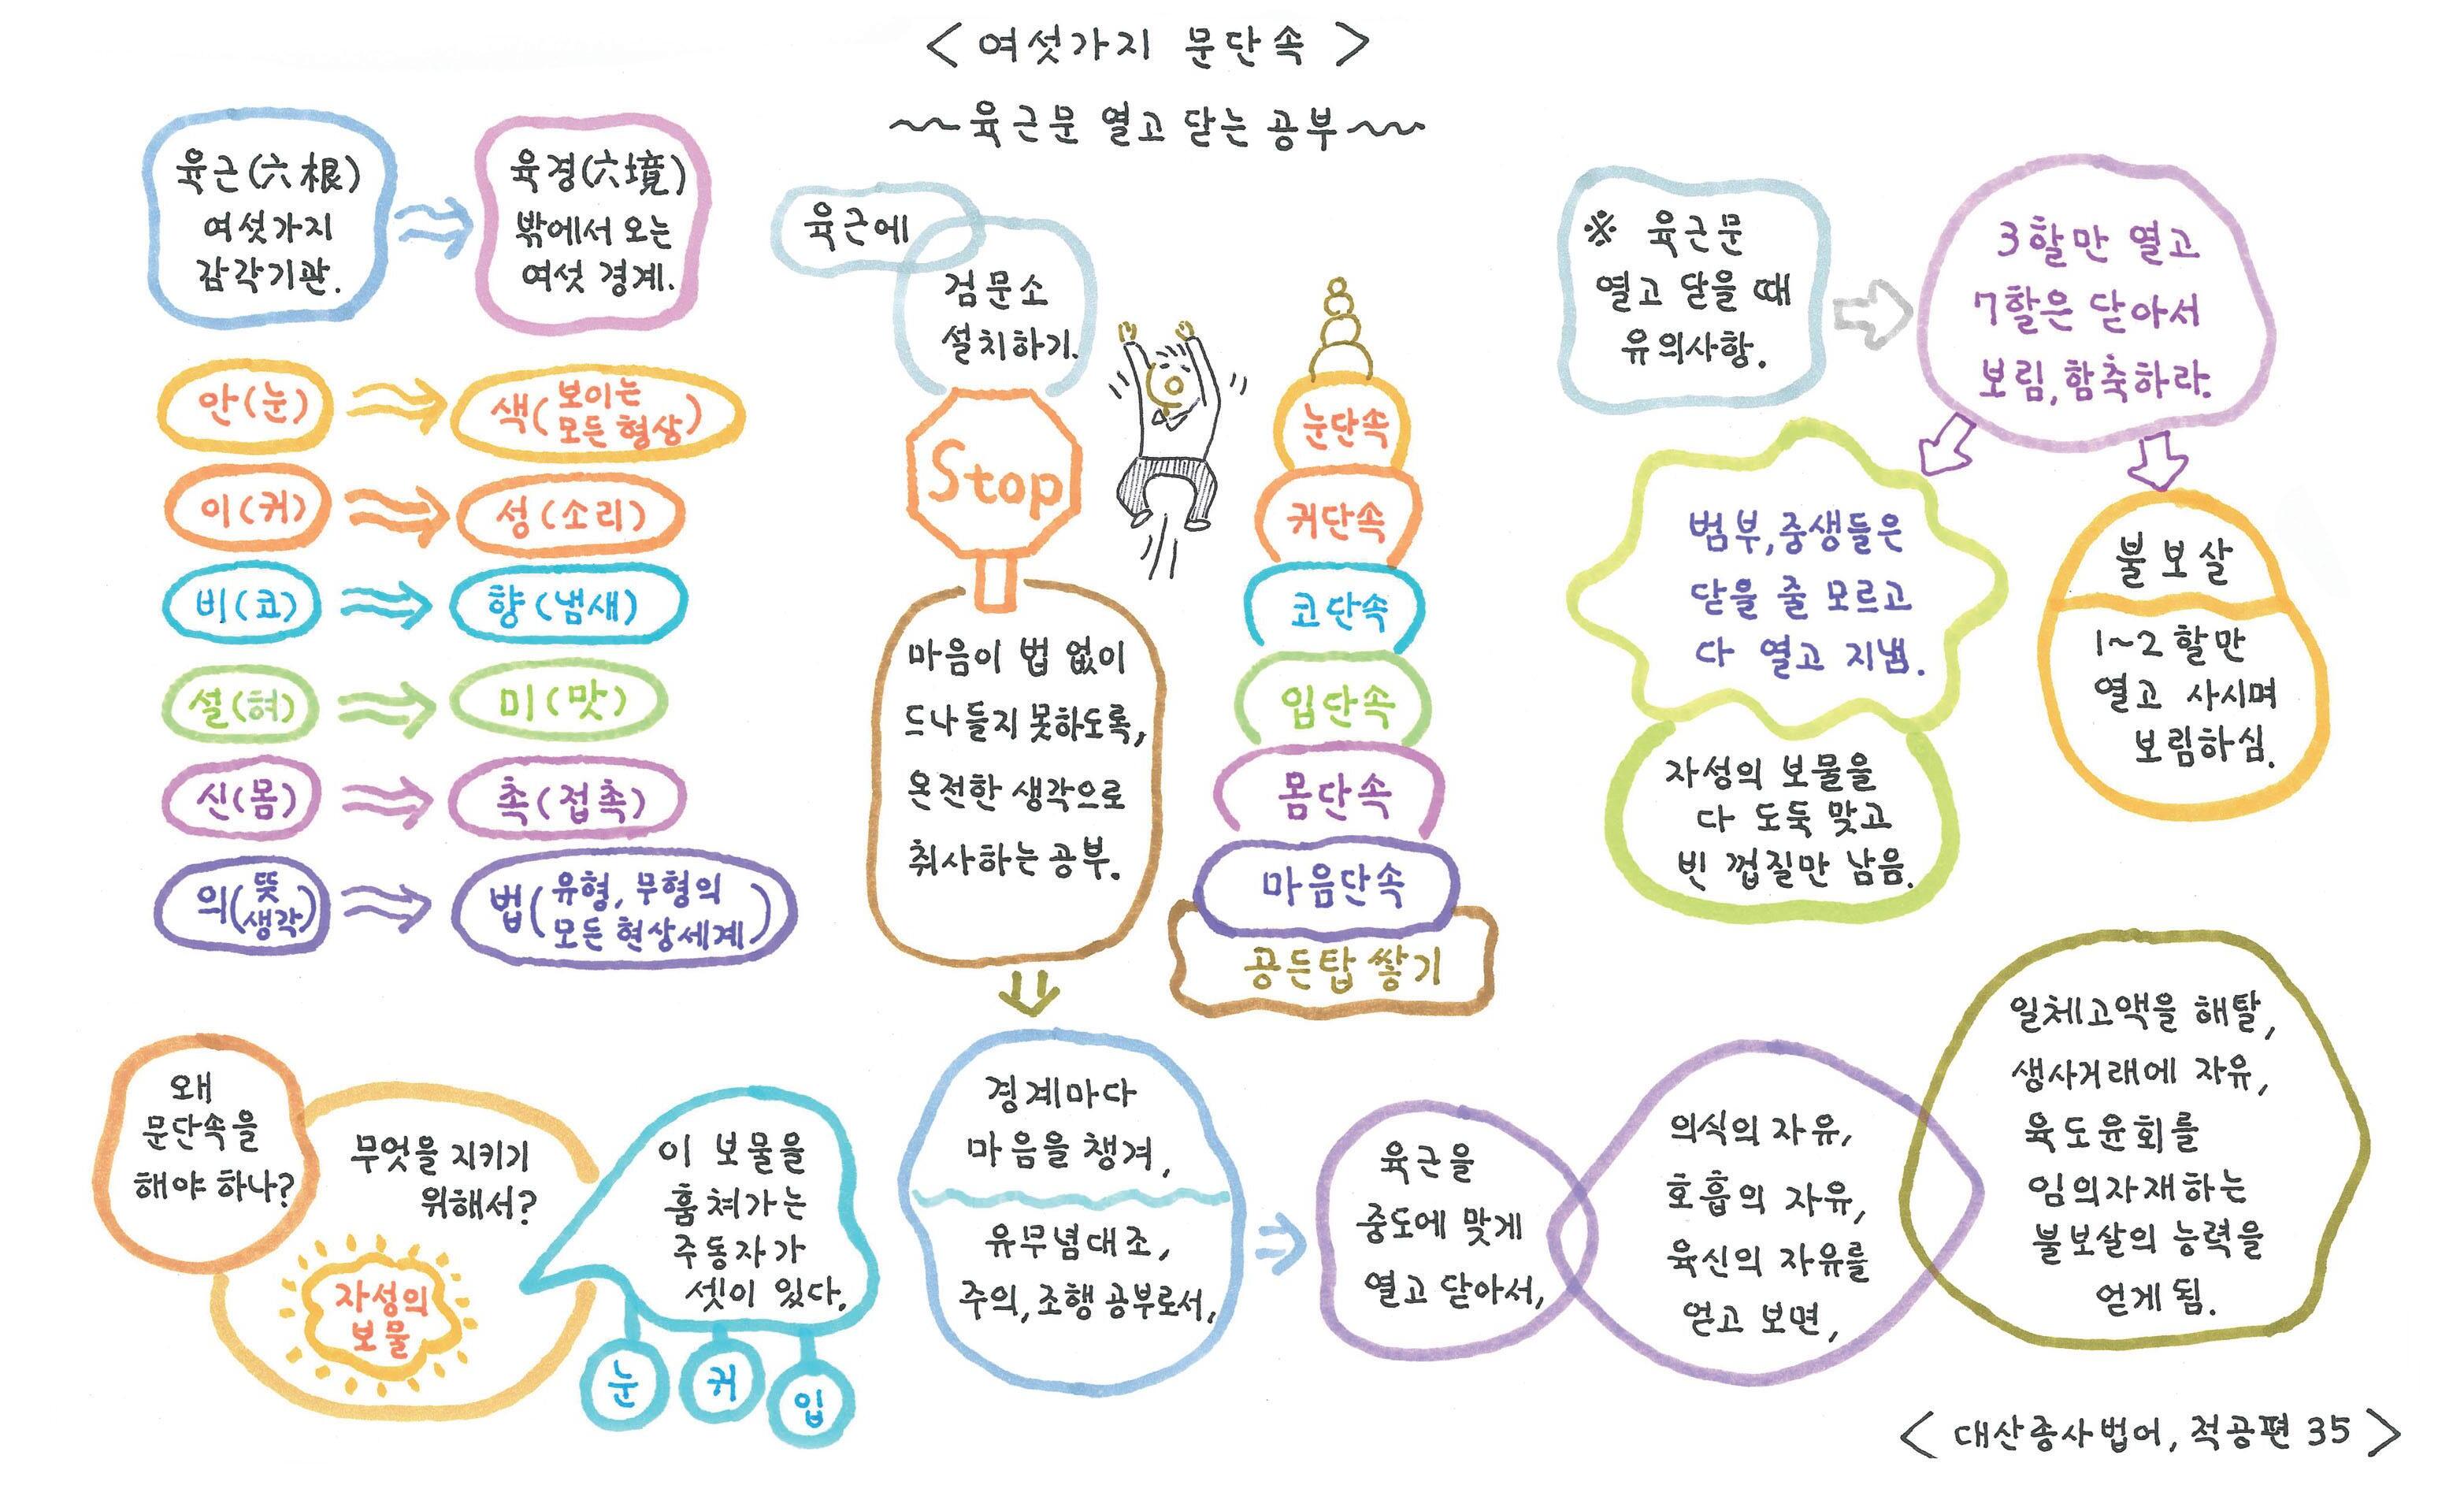 < 여섯가지 문단속 >
~ 육근문 열고 닫는 공부 ~
육근(六根)
여섯가지
감각기관.
육경(六境)
밖에서 오는
여섯 경계.
안(눈)
색(보이는
모든 형상)
이(귀)
성(소리)
비(코)
향(냄새)
설(혀)
미(맛)
신(몸)
촉(접촉)
의(뜻
생각)
법(유형, 무형의
모든 현상세계)
육근에
검문소
설치하기.
Stop
마음이 법 없이
드나들지 못하도록,
온전한 생각으로
취사하는 공부.
눈단속
귀단속
코단속
입단속
몸단속
마음단속
공든탑 쌓기
※ 육근문
열고 닫을 때
유의사항.
3할만 열고
7할은 닫아서
보림, 함축하라.
범부, 중생들은
닫을 줄 모르고
다 열고 지냄.
자성의 보물을
다 도둑 맞고
빈 껍질만 남음.
불보살
1~2할만
열고 사시며
보림하심.
왜
문단속을
해야 하나?
무엇을 지키기
위해서?
자성의
보물
이 보물을
훔쳐가는
주동자가
셋이 있다.
눈
귀
입
경계마다
마음을 챙겨,
유무념대조,
주의, 조행 공부로서,
육근을
중도에 맞게
열고 닫아서,
의식의 자유,
호흡의 자유,
육신의 자유를
얻고 보면,
일체고액을 해탈,
생사거래에 자유,
육도윤회를
임의자재하는
불보살의 능력을
얻게 됨.
< 대산종사법어, 적공편 35 >